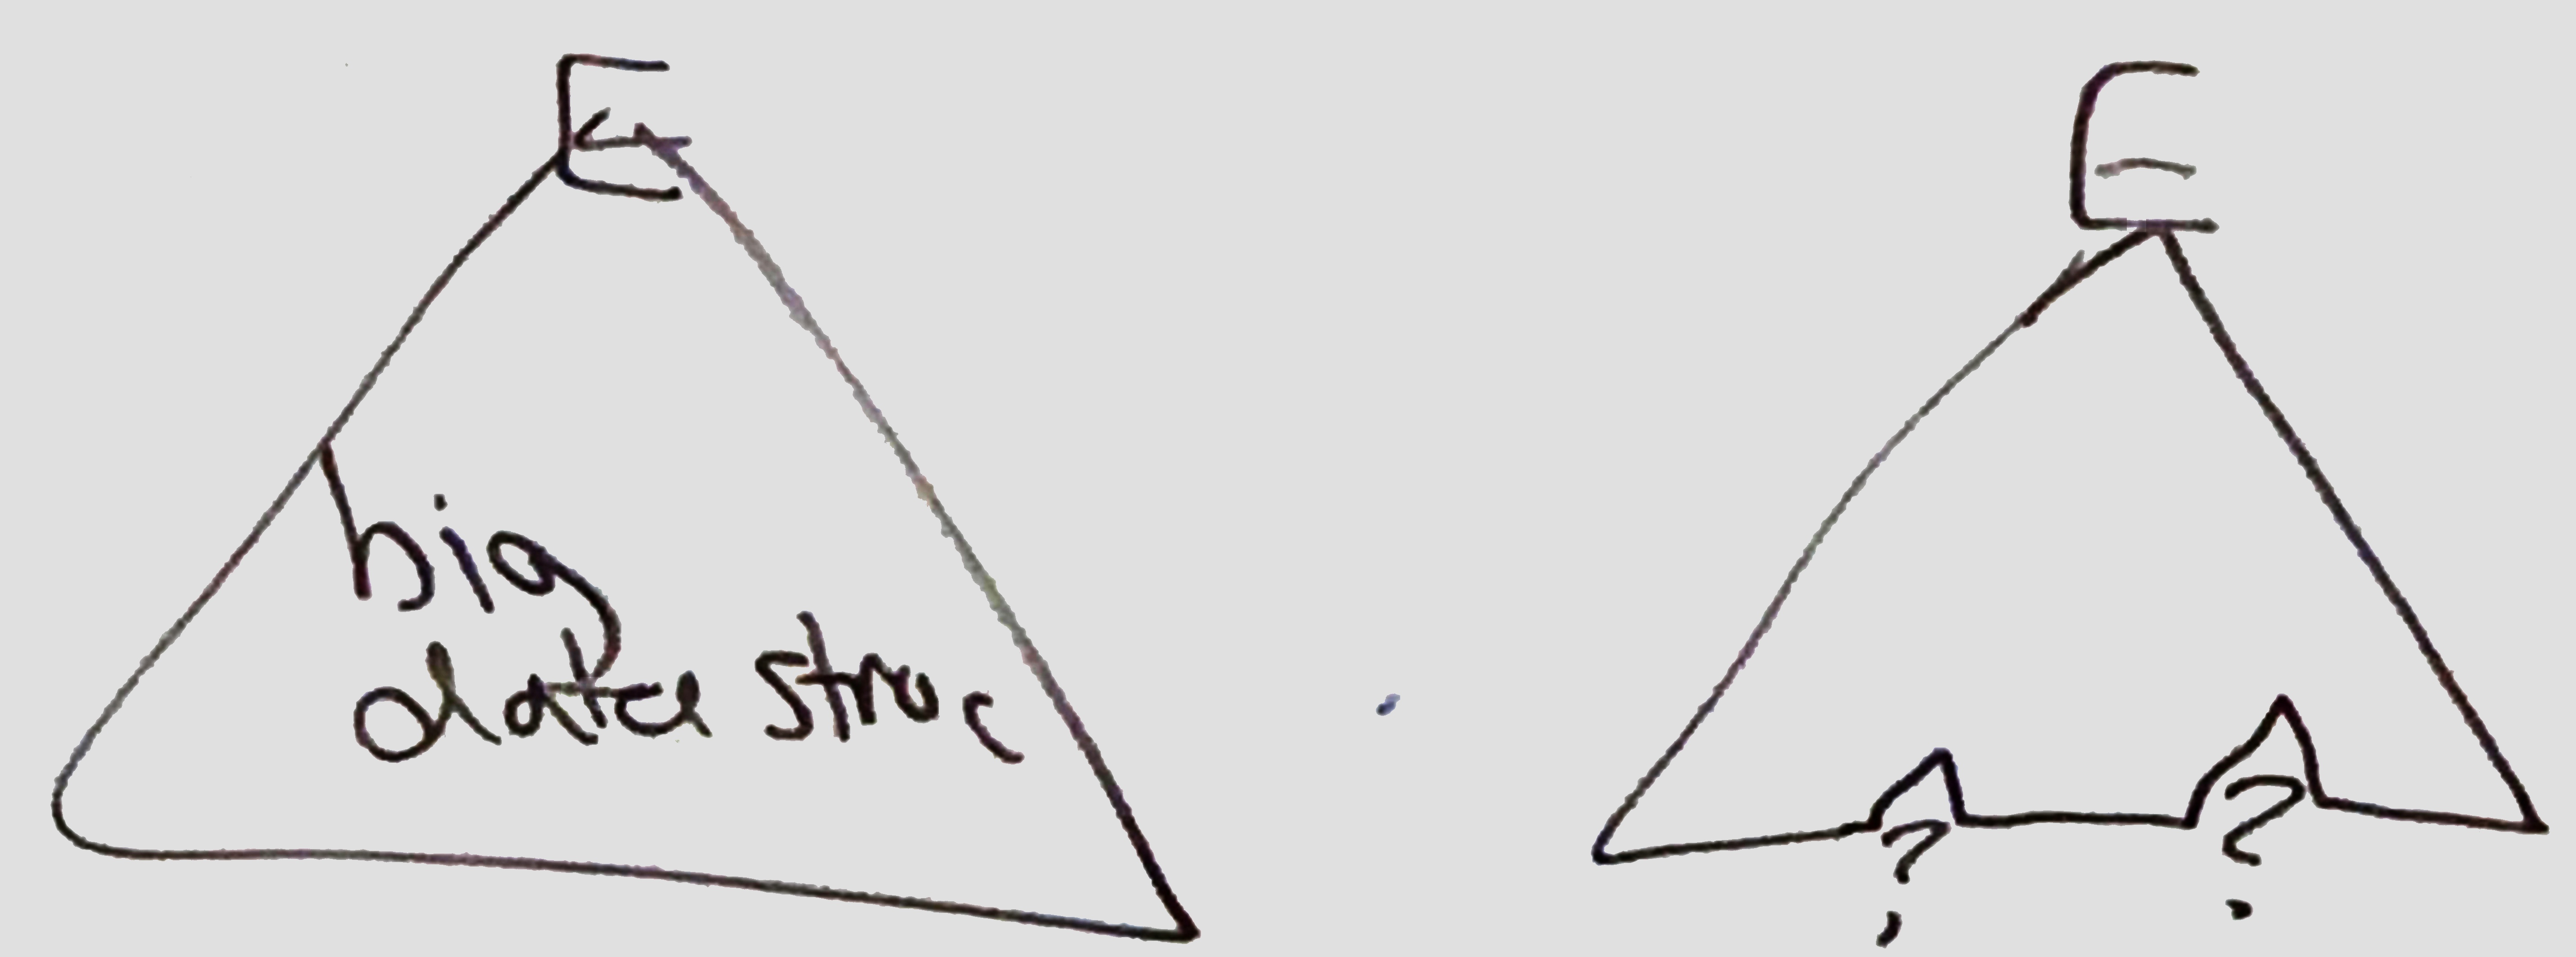 E
big
data struc
E
? ?